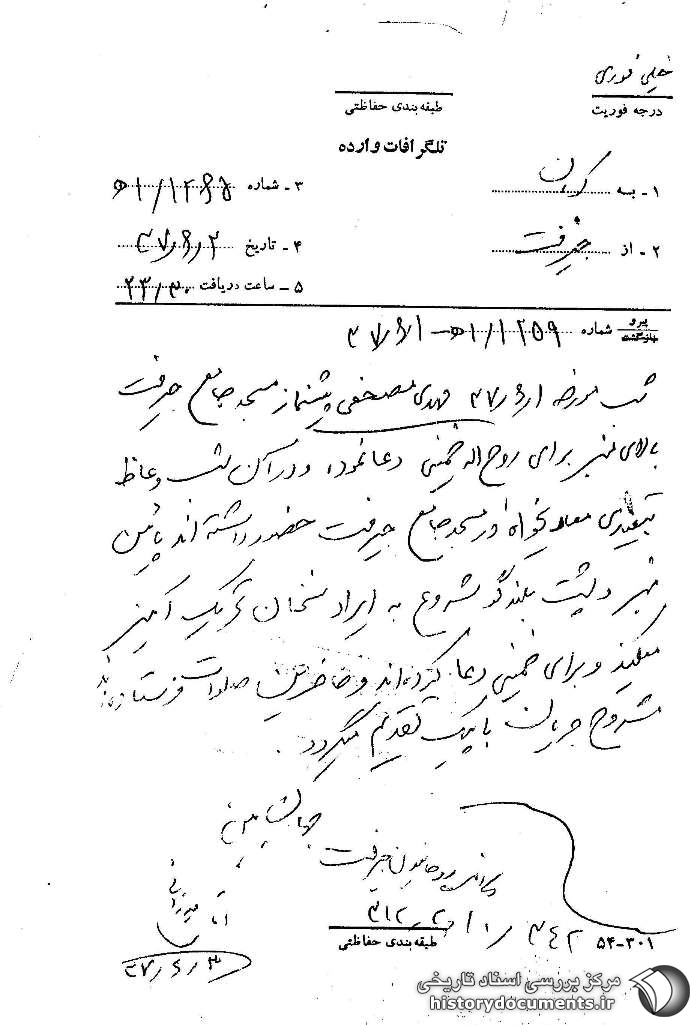 خیلی فوری
درجه فوریت
طبقه‌بندی حفاظتی
تلگرافات وارده
۱ - به کرمان
۳ - شماره ۵۱/۱۲۶۵
۲ - از جیرفت
۴ - تاریخ ۳۷/۶/۲
۵ - ساعت دریافت
پیرو
بازگشت
شماره ۵۱/۱۲۵۹ - ۳۷/۶/۱
شب مورخه ۳۷/۶/۱ مهدی مصحفی پیشنماز مسجد جامع جیرفت
بالای منبر برای روح اله خمینی دعا نموده و در آن شب وعاظ
تبعیدی معادیخواه در مسجد جامع جیرفت حضور داشته‌اند پائین
منبر و پشت بلندگو شروع به ایراد سخنان تحریک آمیز
میکنند و برای خمینی دعا کرده‌اند و حاضرین صلوات فرستاده‌اند
مشروح جریان با پیک تقدیم میگردد .
جیرفت
۳۱۲
۳۴۲
۳۷/۶/۳
۵۴-۳۰۱
طبقه‌بندی حفاظتی
مرکز بررسی اسناد تاریخی
historydocuments.ir